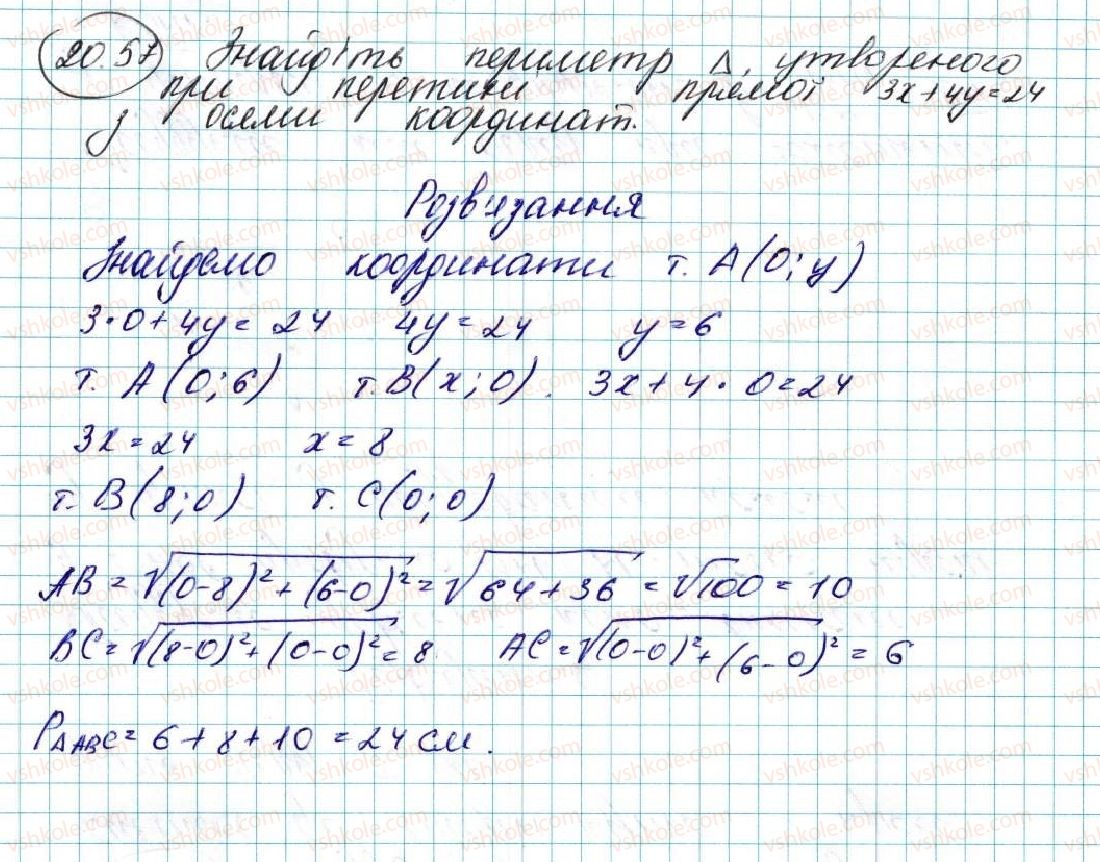 20.57 Знайдіть периметр Δ, утвореного
при перетині прямої 3x+4y=24
з осями координат.
Розв'язання
Знайдемо координати т. A(0; y)
3·0+4y=24 4y=24 y=6
т. A(0;6) т. B(x;0). 3x+4·0=24
3x=24 x=8
т. B(8;0) т. C(0;0)
AB = √(0-8)²+(6-0)² = √64+36 = √100 = 10
BC = √(8-0)²+(0-0)² = 8 AC = √(0-0)²+(6-0)² = 6
PΔABC = 6+8+10 = 24 см.
vshkole.com